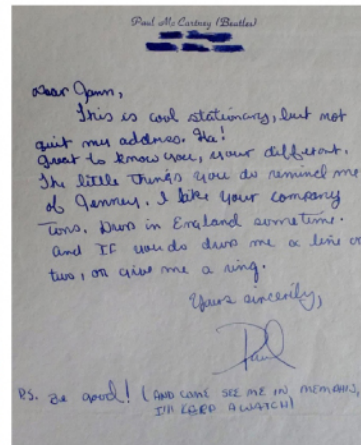 Paul Mc Cartney (Beatles)
Dear Jann,
This is cool stationary, but not
quit my address. Ha!
Great to know you, your different.
The little things you do remind me
of
I like your company
tons. Drop in England sometime.
and IF you do drop me a line or
two, or give me a ring.
Yours sincerily,
Paul
P.S. Be good! (AND COME SEE ME IN MEMPHIS,
I'll A WATCH)